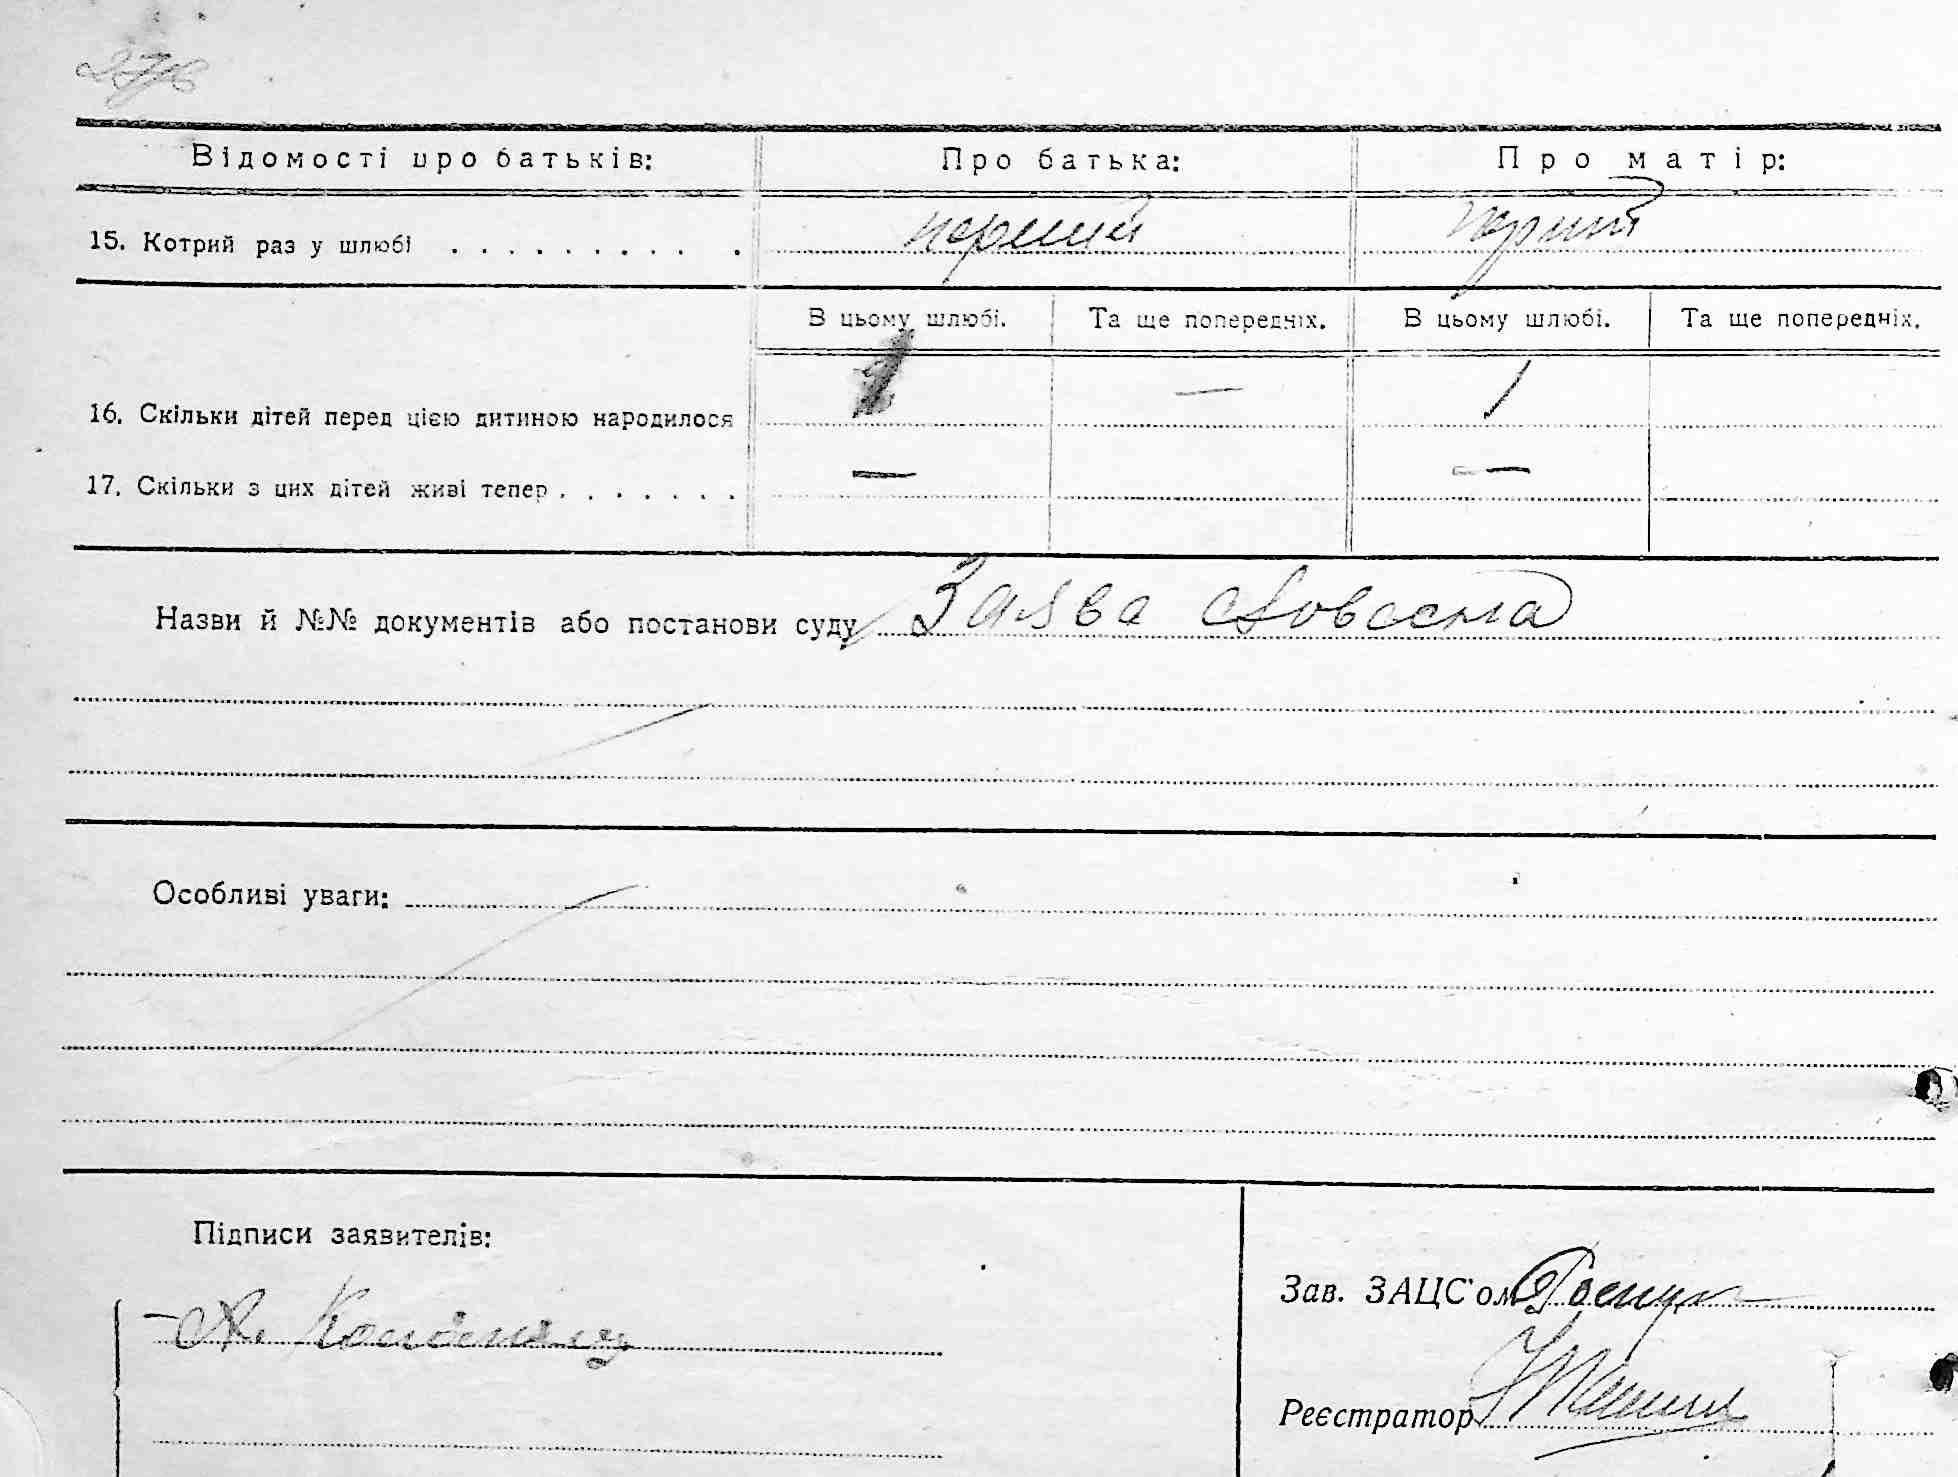 Відомості про батьків: Про батька: Про матір:
15. Котрий раз у шлюбі . . . . . . . . . . перший перший
В цьому шлюбі. Та ще попередніх. В цьому шлюбі. Та ще попередніх.
16. Скільки дітей перед цією дитиною народилося — /
17. Скільки з цих дітей живі тепер . . . . . . . — —
Назви й №№ документів або постанови суду Заява словесна
Особливі уваги:
Підписи заявителів:
Зав. ЗАЦС'ом
А.
Реєстратор